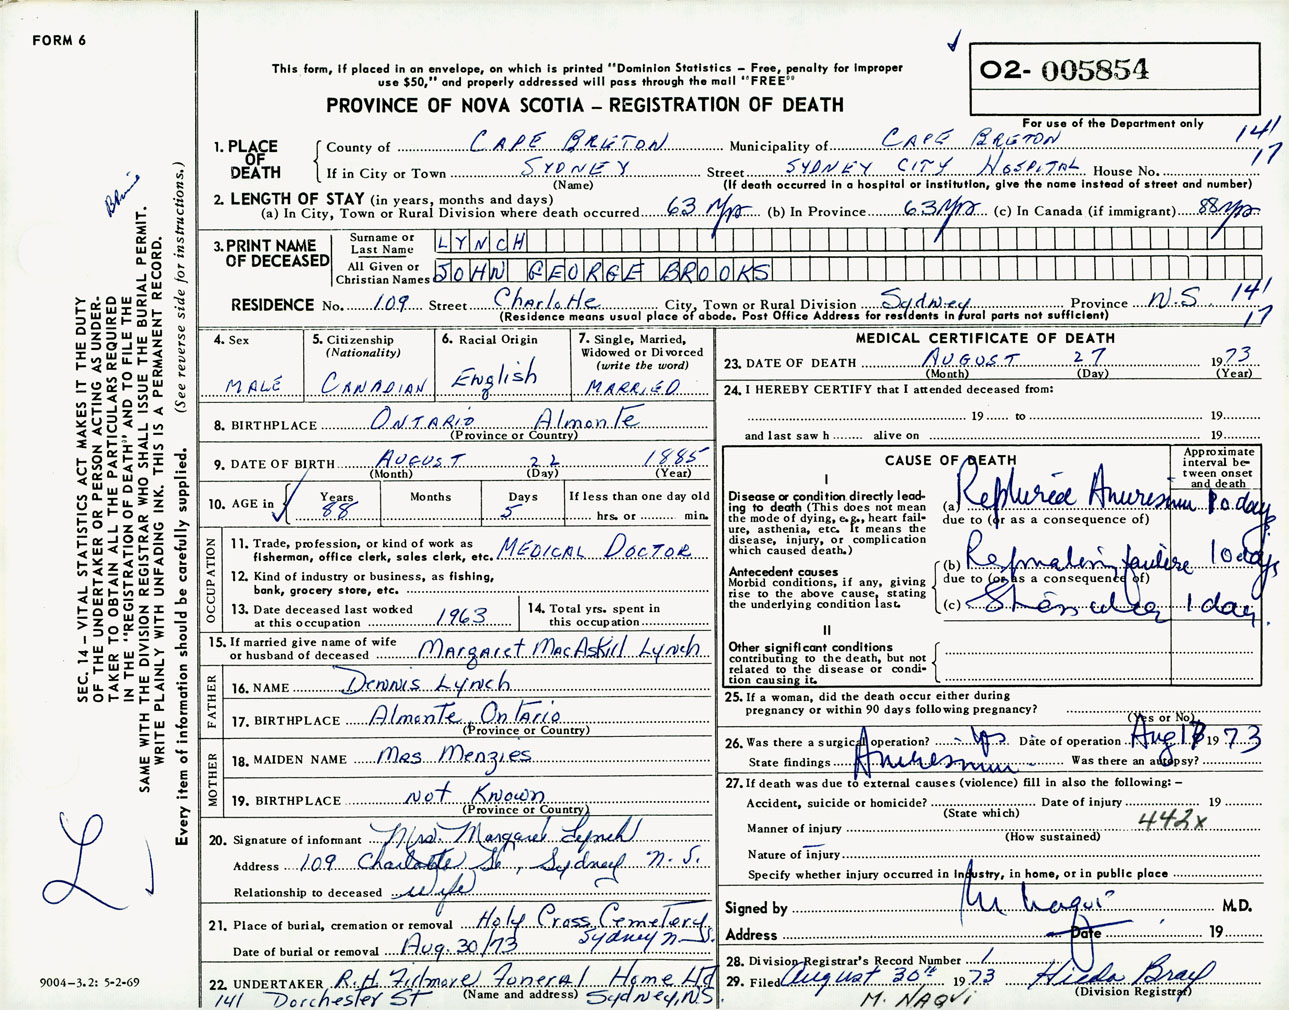 FORM 6
This form, if placed in an envelope, on which is printed "Dominion Statistics – Free, penalty for improper
use $50," and properly addressed will pass through the mail "FREE"
O2- 005854
PROVINCE OF NOVA SCOTIA – REGISTRATION OF DEATH
For use of the Department only
1. PLACE OF DEATH
County of CAPE BRETON Municipality of CAPE BRETON 141
If in City or Town SYDNEY Street SYDNEY CITY HOSPITAL House No. 17
(Name) (If death occurred in a hospital or institution, give the name instead of street and number)
2. LENGTH OF STAY (in years, months and days)
(a) In City, Town or Rural Division where death occurred 63 Yrs (b) In Province 63 Yrs (c) In Canada (if immigrant) 88 Yrs
3. PRINT NAME OF DECEASED
Surname or Last Name LYNCH
All Given or Christian Names JOHN GEORGE BROOKS
RESIDENCE No. 109 Street Charlotte City, Town or Rural Division Sydney Province N.S. 141
(Residence means usual place of abode. Post Office Address for residents in rural parts not sufficient) 17
4. Sex MALE
5. Citizenship (Nationality) CANADIAN
6. Racial Origin English
7. Single, Married, Widowed or Divorced (write the word) MARRIED
8. BIRTHPLACE ONTARIO Almonte
(Province or Country)
9. DATE OF BIRTH AUGUST 22 1885
(Month) (Day) (Year)
10. AGE in Years 88 Months Days 5 If less than one day old hrs. or min.
OCCUPATION
11. Trade, profession, or kind of work as fisherman, office clerk, sales clerk, etc. MEDICAL DOCTOR
12. Kind of industry or business, as fishing, bank, grocery store, etc.
13. Date deceased last worked at this occupation 1963
14. Total yrs. spent in this occupation
15. If married give name of wife or husband of deceased Margaret MacAskill Lynch
FATHER
16. NAME Dennis Lynch
17. BIRTHPLACE Almonte, Ontario
(Province or Country)
MOTHER
18. MAIDEN NAME Mrs Menzies
19. BIRTHPLACE Not Known
(Province or Country)
20. Signature of informant Mrs. Margaret Lynch
Address 109 Charlotte St, Sydney N.S.
Relationship to deceased wife
21. Place of burial, cremation or removal Holy Cross Cemetery Sydney N.S.
Date of burial or removal Aug. 30/73
22. UNDERTAKER R.H. Fillmore Funeral Home Ltd
141 Dorchester ST (Name and address) Sydney, N.S.
MEDICAL CERTIFICATE OF DEATH
23. DATE OF DEATH AUGUST 27 1973
(Month) (Day) (Year)
24. I HEREBY CERTIFY that I attended deceased from:
19 to 19
and last saw h alive on 19
CAUSE OF DEATH
Approximate interval between onset and death
I
Disease or condition directly leading to death (This does not mean the mode of dying, e.g., heart failure, asthenia, etc. It means the disease, injury, or complication which caused death.)
(a) 10 days
due to (or as a consequence of)
Antecedent causes
Morbid conditions, if any, giving rise to the above cause, stating the underlying condition last.
(b) failure 10 days
due to (or as a consequence of)
(c) 1 day
II
Other significant conditions contributing to the death, but not related to the disease or condition causing it.
25. If a woman, did the death occur either during pregnancy or within 90 days following pregnancy?
(Yes or No)
26. Was there a surgical operation? yes Date of operation Aug 17 1973
State findings Was there an autopsy?
27. If death was due to external causes (violence) fill in also the following: –
Accident, suicide or homicide? Date of injury 19
(State which)
Manner of injury 442x
(How sustained)
Nature of injury
Specify whether injury occurred in industry, in home, or in public place
Signed by M Naqui M.D.
Address Date 19
28. Division Registrar's Record Number 1
29. Filed August 30th 1973 Hilda Bray
M. NAQUI (Division Registrar)
SEC. 14 – VITAL STATISTICS ACT MAKES IT THE DUTY
OF THE UNDERTAKER OR PERSON ACTING AS UNDER-
TAKER TO OBTAIN ALL THE PARTICULARS REQUIRED
IN THE "REGISTRATION OF DEATH" AND TO FILE THE
SAME WITH THE DIVISION REGISTRAR WHO SHALL ISSUE THE BURIAL PERMIT.
WRITE PLAINLY WITH UNFADING INK. THIS IS A PERMANENT RECORD.
Every item of information should be carefully supplied. (See reverse side for instructions.)
L
9004-3.2: 5-2-69